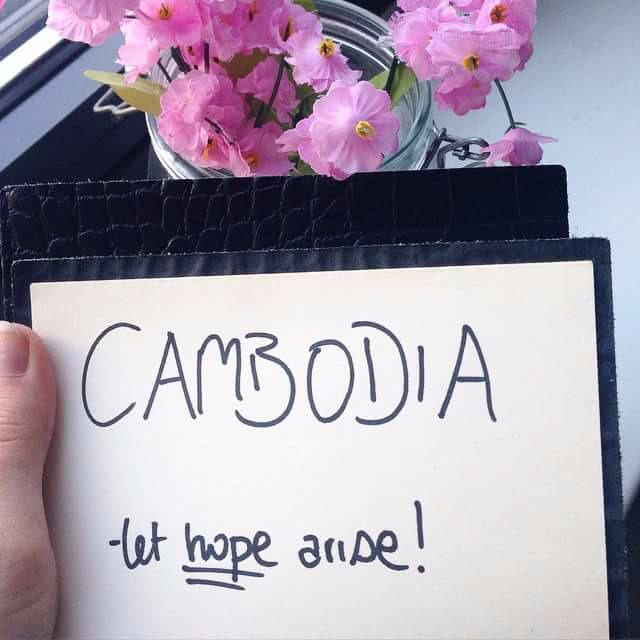 CAMBODIA
-let hope arise!